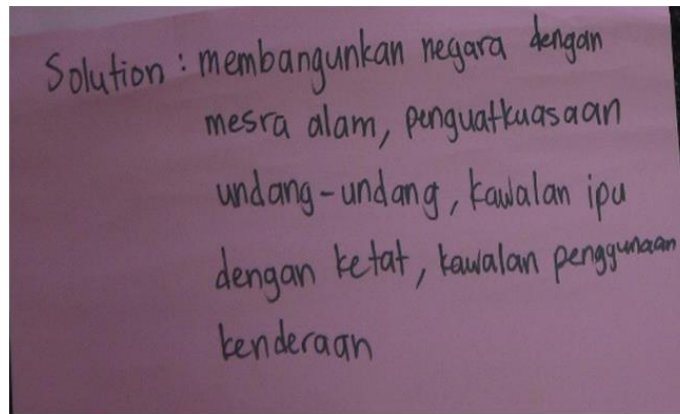 Solution : membangunkan negara dengan
mesra alam, penguatkuasaan
undang-undang, kawalan ipu
dengan ketat, kawalan penggunaan
kenderaan